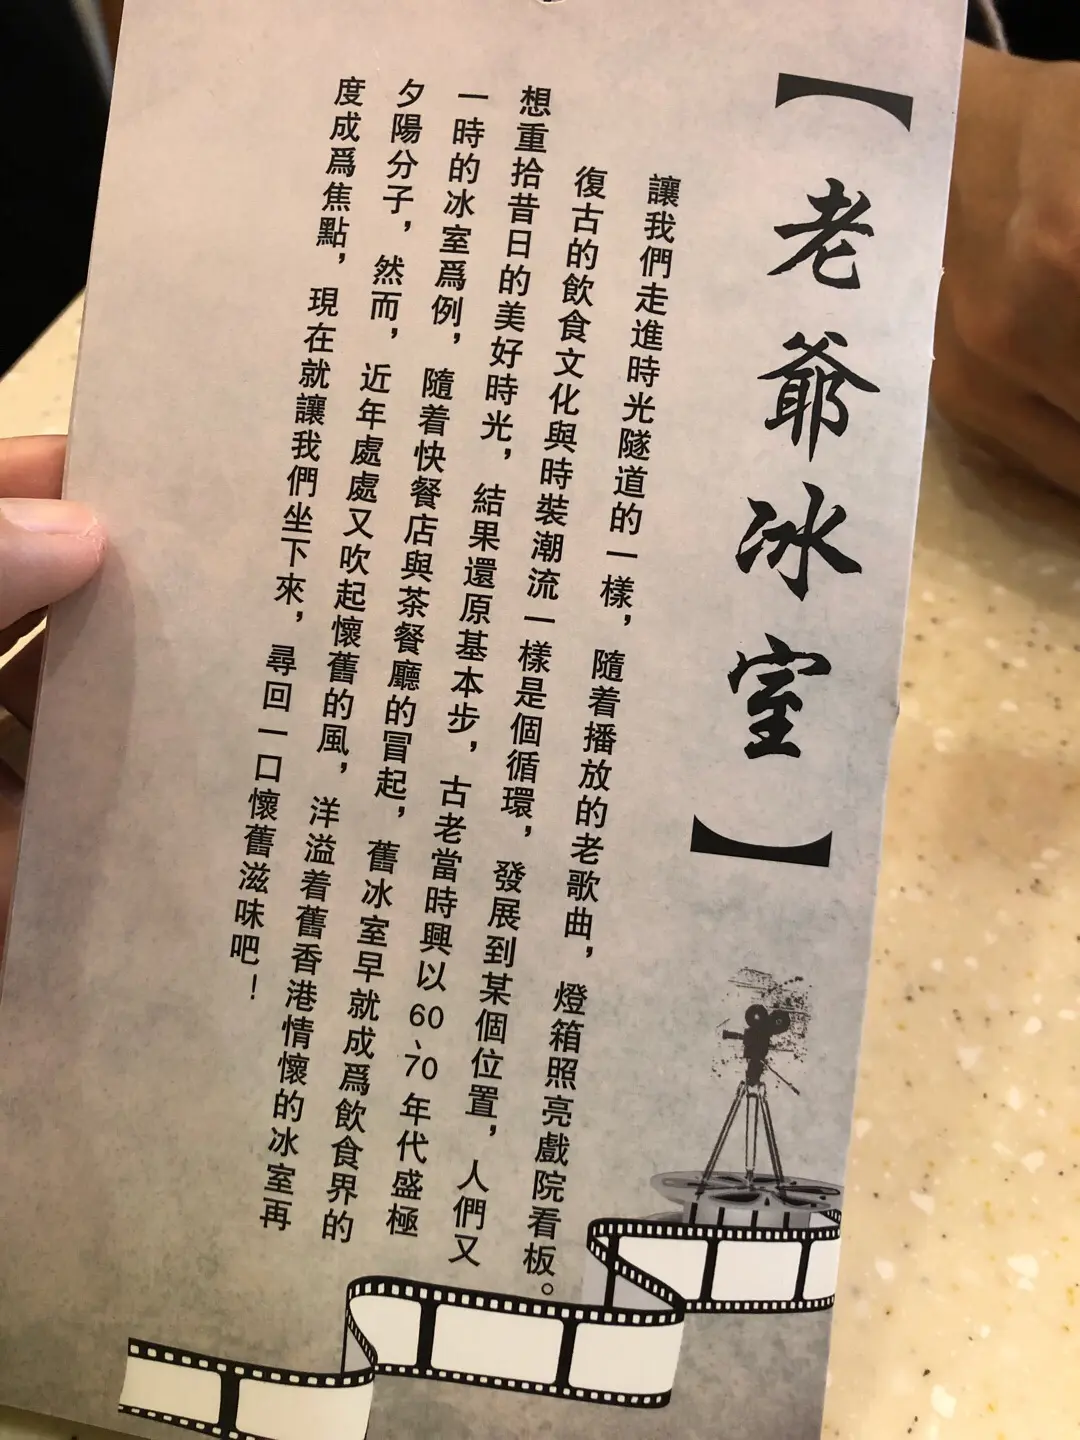 【老爺冰室】
讓我們走進時光隧道的一樣，隨着播放的老歌曲，燈箱照亮戲院看板。
復古的飲食文化與時裝潮流一樣是個循環，發展到某個位置，人們又
想重拾昔日的美好時光，結果還原基本步，古老當時興以60、70年代盛極
一時的冰室爲例，隨着快餐店與茶餐廳的冒起，舊冰室早就成爲飲食界的
夕陽分子，然而，近年處處又吹起懷舊的風，洋溢着舊香港情懷的冰室再
度成爲焦點，現在就讓我們坐下來，尋回一口懷舊滋味吧！